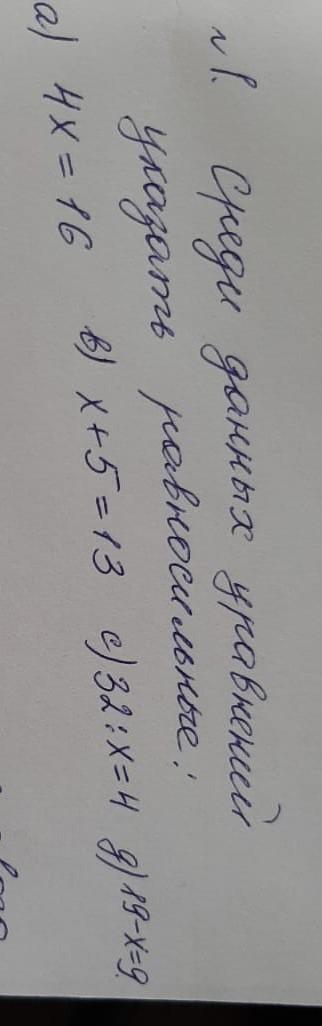 №1. Среди данных уравнений
указать равносильные:
a) 4x = 16 в) x + 5 = 13 c) 32 : x = 4 g) 19 - x = 9.